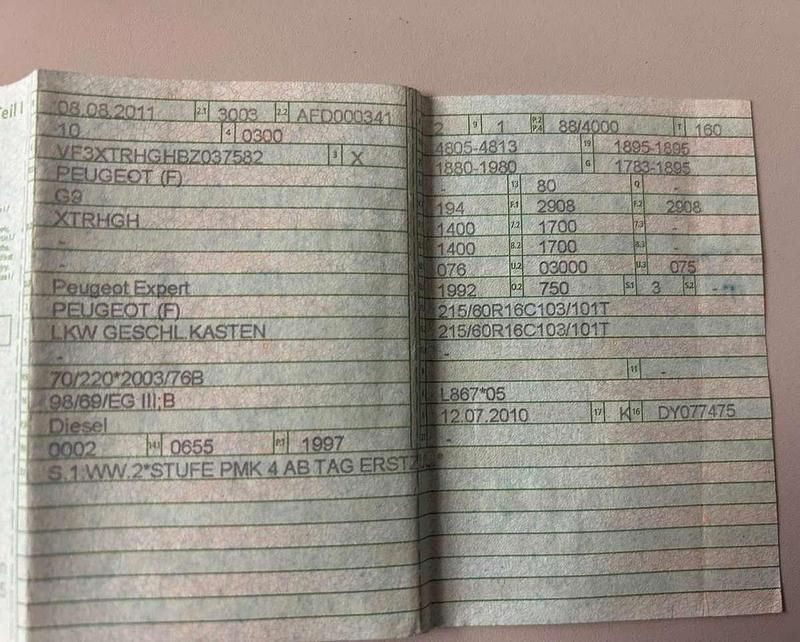 eil I
08.08.2011 2.1 3003 2.2 AFD000341
10 4 0300
VF3XTRHGHBZ037582 3 X
PEUGEOT (F)
G9
XTRHGH
-
-
Peugeot Expert
PEUGEOT (F)
LKW GESCHL.KASTEN
-
70/220*2003/76B
98/69/EG III;B
Diesel
0002 14.1 0655 P.1 1997
S.1:WW.2*STUFE PMK 4 AB TAG ERSTZ
2 9 1 P.2 P.4 88/4000 T 160
4805-4813 19 1895-1895
1880-1980 G 1783-1895
- 13 80 Q -
194 F.1 2908 F.2 2908
1400 7.2 1700 7.3 -
1400 8.2 1700 8.3 -
076 U.2 03000 U.3 075
1992 O.2 750 S.1 3 S.2 -
215/60R16C103/101T
215/60R16C103/101T
-
11 -
L867*05
12.07.2010 17 K 16 DY077475
-